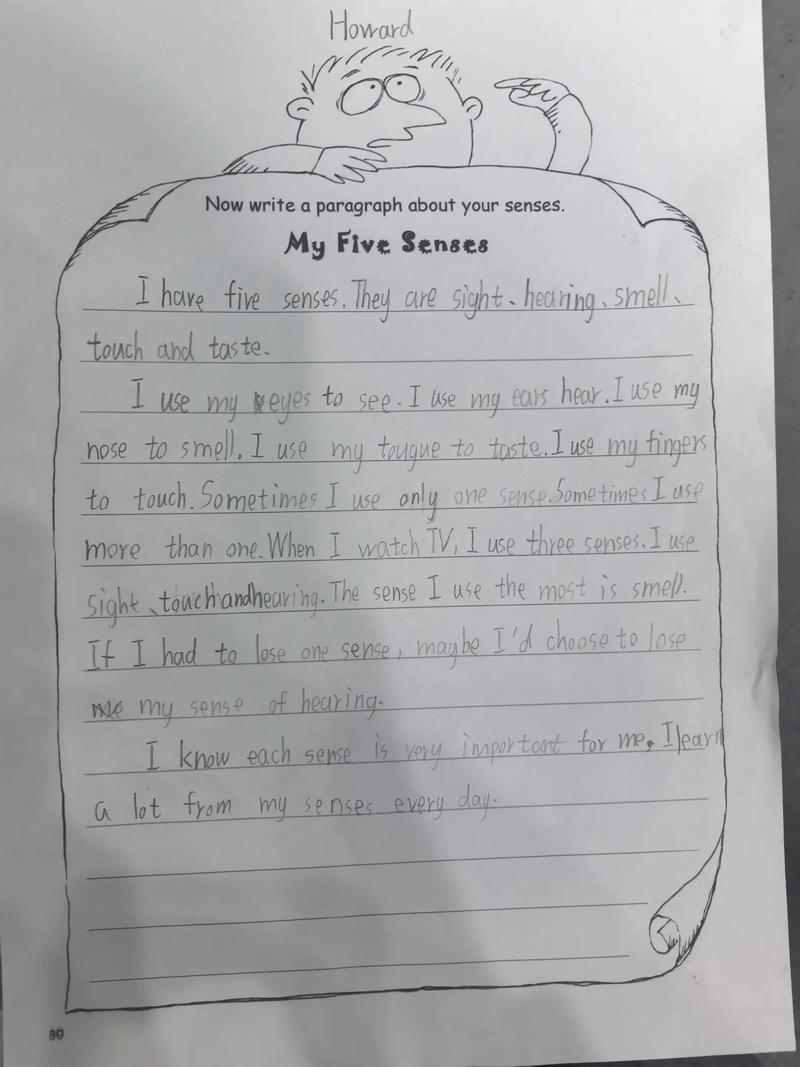 Howard
Now write a paragraph about your senses.
My Five Senses
I have five senses. They are sight、hearing、smell、
touch and taste.
I use my eyes to see. I use my ears hear. I use my
nose to smell. I use my tougue to taste. I use my fingers
to touch. Sometimes I use only one sense. Sometimes I use
more than one. When I watch TV, I use three senses. I use
sight、touch and hearing. The sense I use the most is smell.
If I had to lose one sense, maybe I'd choose to lose
my sense of hearing.
I know each sense is very important for me, I learn
a lot from my senses every day.
30